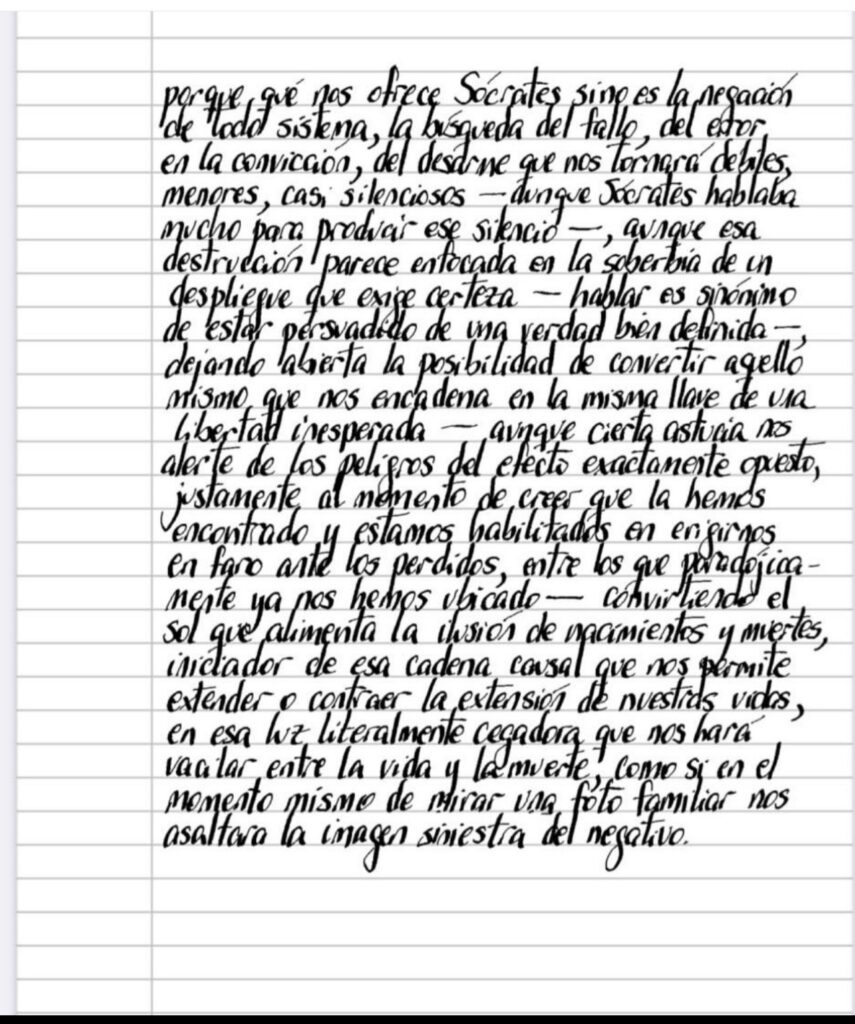 porque, qué nos ofrece Sócrates sino es la negación
de todo sistema, la búsqueda del fallo, del error
en la convicción, del desarme que nos tornará débiles,
menores, casi silenciosos — aunque Sócrates hablaba
mucho para producir ese silencio —, aunque esa
destrucción parece enfocada en la soberbia de un
despliegue que exige certeza — hablar es sinónimo
de estar persuadido de una verdad bien definida —,
dejando abierta la posibilidad de convertir aquello
mismo que nos encadena en la misma llave de una
libertad inesperada — aunque cierta astucia nos
alerte de los peligros del efecto exactamente opuesto,
justamente al momento de creer que la hemos
encontrado y estamos habilitados en erigirnos
en faro ante los perdidos, entre los que paradójica-
mente ya nos hemos ubicado — convirtiendo el
sol que alimenta la ilusión de nacimientos y muertes,
iniciador de esa cadena causal que nos permite
extender o contraer la extensión de nuestras vidas,
en esa luz literalmente cegadora que nos hará
vacilar entre la vida y la muerte, como si en el
momento mismo de mirar una foto familiar nos
asaltara la imagen siniestra del negativo.